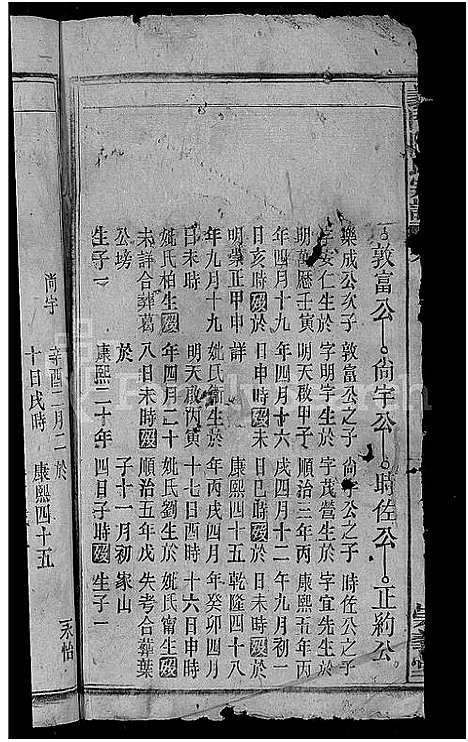 敦富公 尚宇公 時佐公 正約公
樂成公次子 敦富公之子 尚宇公之子 時佐公之子
字安仁生於 字明宇生於 字茂營生於 字宜先生於
明萬曆壬寅 明天啟甲子 順治三年丙 康熙五年丙
年四月十九 年四月十六 戌四月十二 午九月初一
日亥時歿於 日申時歿未 日巳時歿於 日未時歿於
明崇正甲申 詳 康熙四十五 乾隆四十八
年九月十九 妣氏衛生於 年丙戌四月 年癸卯四月
日未時 明天啟丙寅 十七日酉時 十六日申時
妣氏柏生歿 年四月二十 妣氏劉生於 妣氏甯生歿
未詳合葬葛 八日未時歿 順治五年戊 失考合葬葉
公塝 於 子十一月初 家山
生子一 康熙二十年 四日子時歿 生子一
尚宇 辛酉二月二 於
十日戌時 康熙四十五
永怡